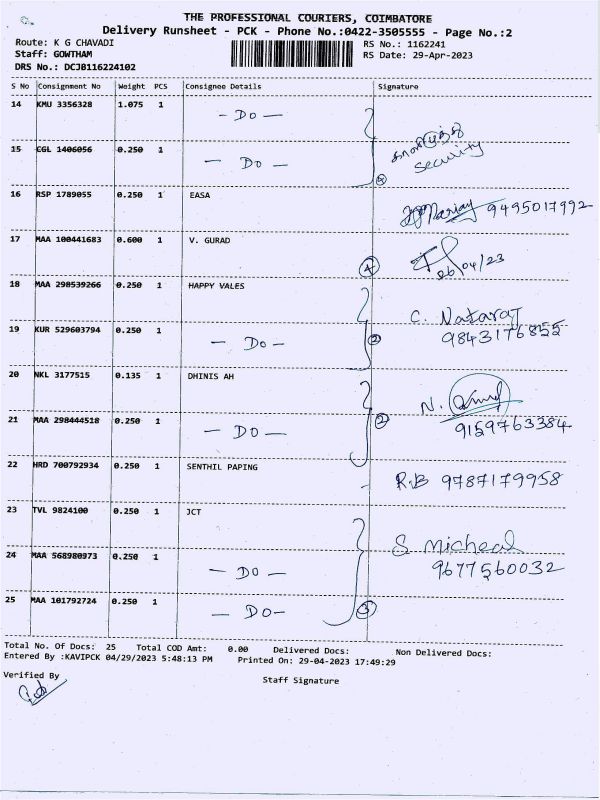 THE PROFESSIONAL COURIERS, COIMBATORE
Delivery Runsheet - PCK - Phone No.:0422-3505555 - Page No.:2
Route: K G CHAVADI
RS No.: 1162241
Staff: GOWTHAM
RS Date: 29-Apr-2023
DRS No.: DCJ0116224102
S No Consignment No Weight PCS Consignee Details Signature
14 KMU 3356328 1.075 1 - Do -
15 CGL 1406056 0.250 1 - Do - security
16 RSP 1789055 0.250 1 EASA 9495017992
17 MAA 100441683 0.600 1 V. GURAD 26/04/23
18 MAA 298539266 0.250 1 HAPPY VALES C. Nataraj
19 KUR 529603794 0.250 1 - Do - 2 9843176855
20 NKL 3177515 0.135 1 DHINIS AH N.
21 MAA 298444518 0.250 1 - Do - 2 9159763384
22 HRD 700792934 0.250 1 SENTHIL PAPING R.B 9787179958
23 TVL 9824100 0.250 1 JCT S Micheal
24 MAA 568980973 0.250 1 - Do - 9677560032
25 MAA 101792724 0.250 1 - Do - 3
Total No. Of Docs: 25 Total COD Amt: 0.00 Delivered Docs: Non Delivered Docs:
Entered By :KAVIPCK 04/29/2023 5:48:13 PM Printed On: 29-04-2023 17:49:29
Verified By
Staff Signature